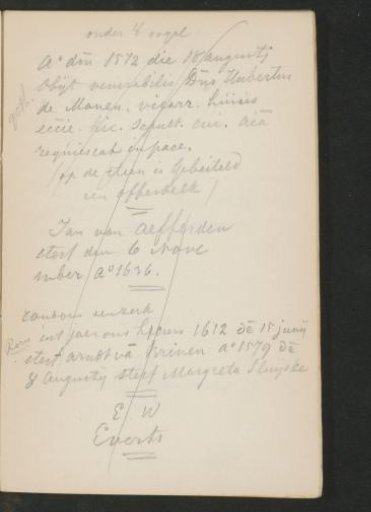 onder 't orgel
Aº dm̄ 1572 die 18 augustij
Obijt venerabilis Dn̄s Hubertus
de Monen. vicarr. huius
eccie. hic. Sepult. cui. aīa
requiescat in pace.
(op de steen is Gebeiteld
een offerkelk)
Jan van Aefferden
sterf den 6 Nove
mber Aº 1636.
int jaer ons heren 1612 dē 15 junij
sterf arndt vā Brinen aº 1579 dē
8 Augustij sterf Margreta Sluyske
E W
Everts